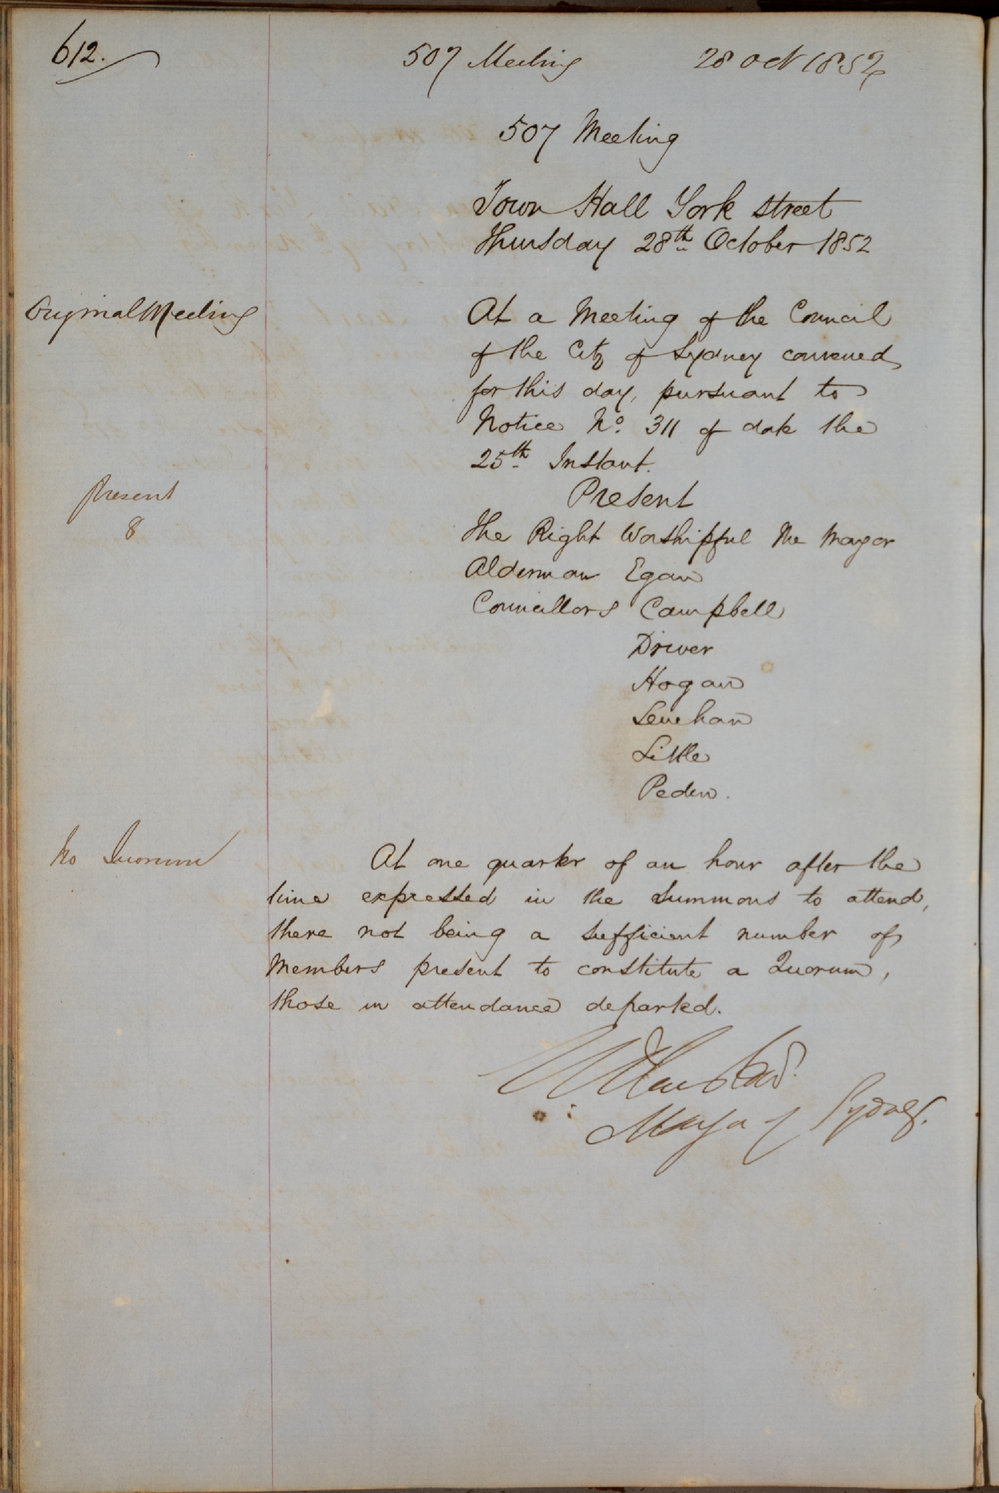 612.
507 Meeting 28 Oct 1852
507 Meeting
Town Hall York street
Thursday 28th October 1852
Original Meeting
At a Meeting of the Council
of the City of Sydney convened
for this day, pursuant to
Notice No. 311 of date the
25th Instant.
Present
8
Present
The Right Worshipful the Mayor
Alderman Egan
Councillors Campbell
Driver
Hogan
Lenehan
Little
Peden.
No Quorum
At one quarter of an hour after the
time expressed in the Summons to attend,
there not being a sufficient number of
Members present to constitute a Quorum,
those in attendance departed.
Mayor of Sydney.